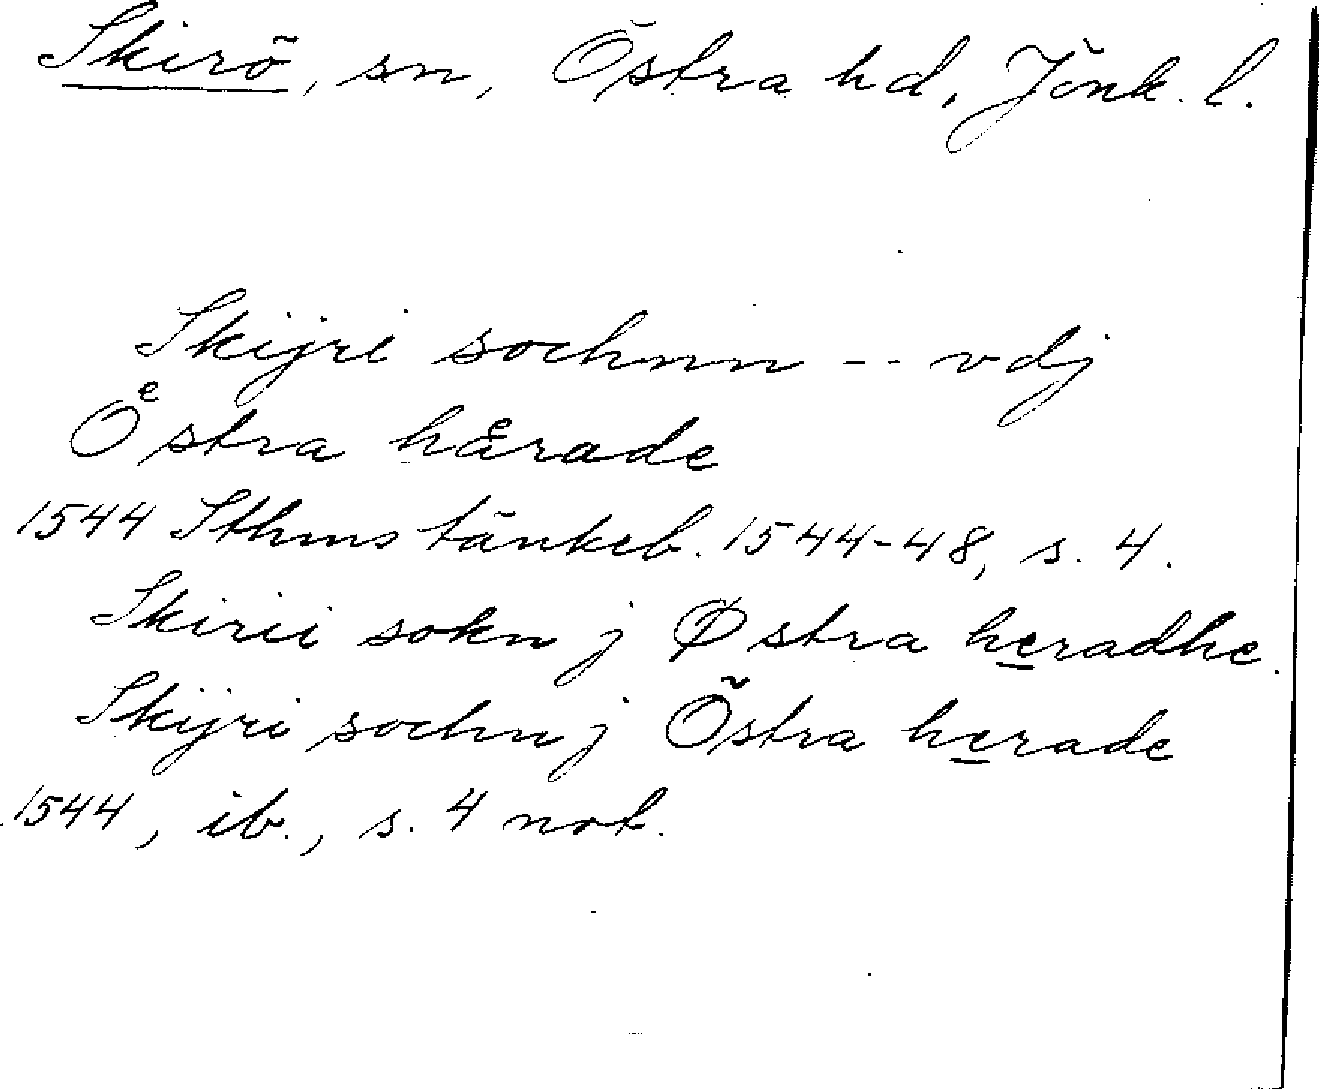 Skirö, sn, Östra hd, Jönk. l.
Skijri sochnn -- vdj
Oͤstra haͤrade
1544 Sthms tänkeb. 1544-48, s. 4.
Skirii sokn j Østra heradhe.
Skijri sochn j Östra herade
1544, ib., s. 4 not.